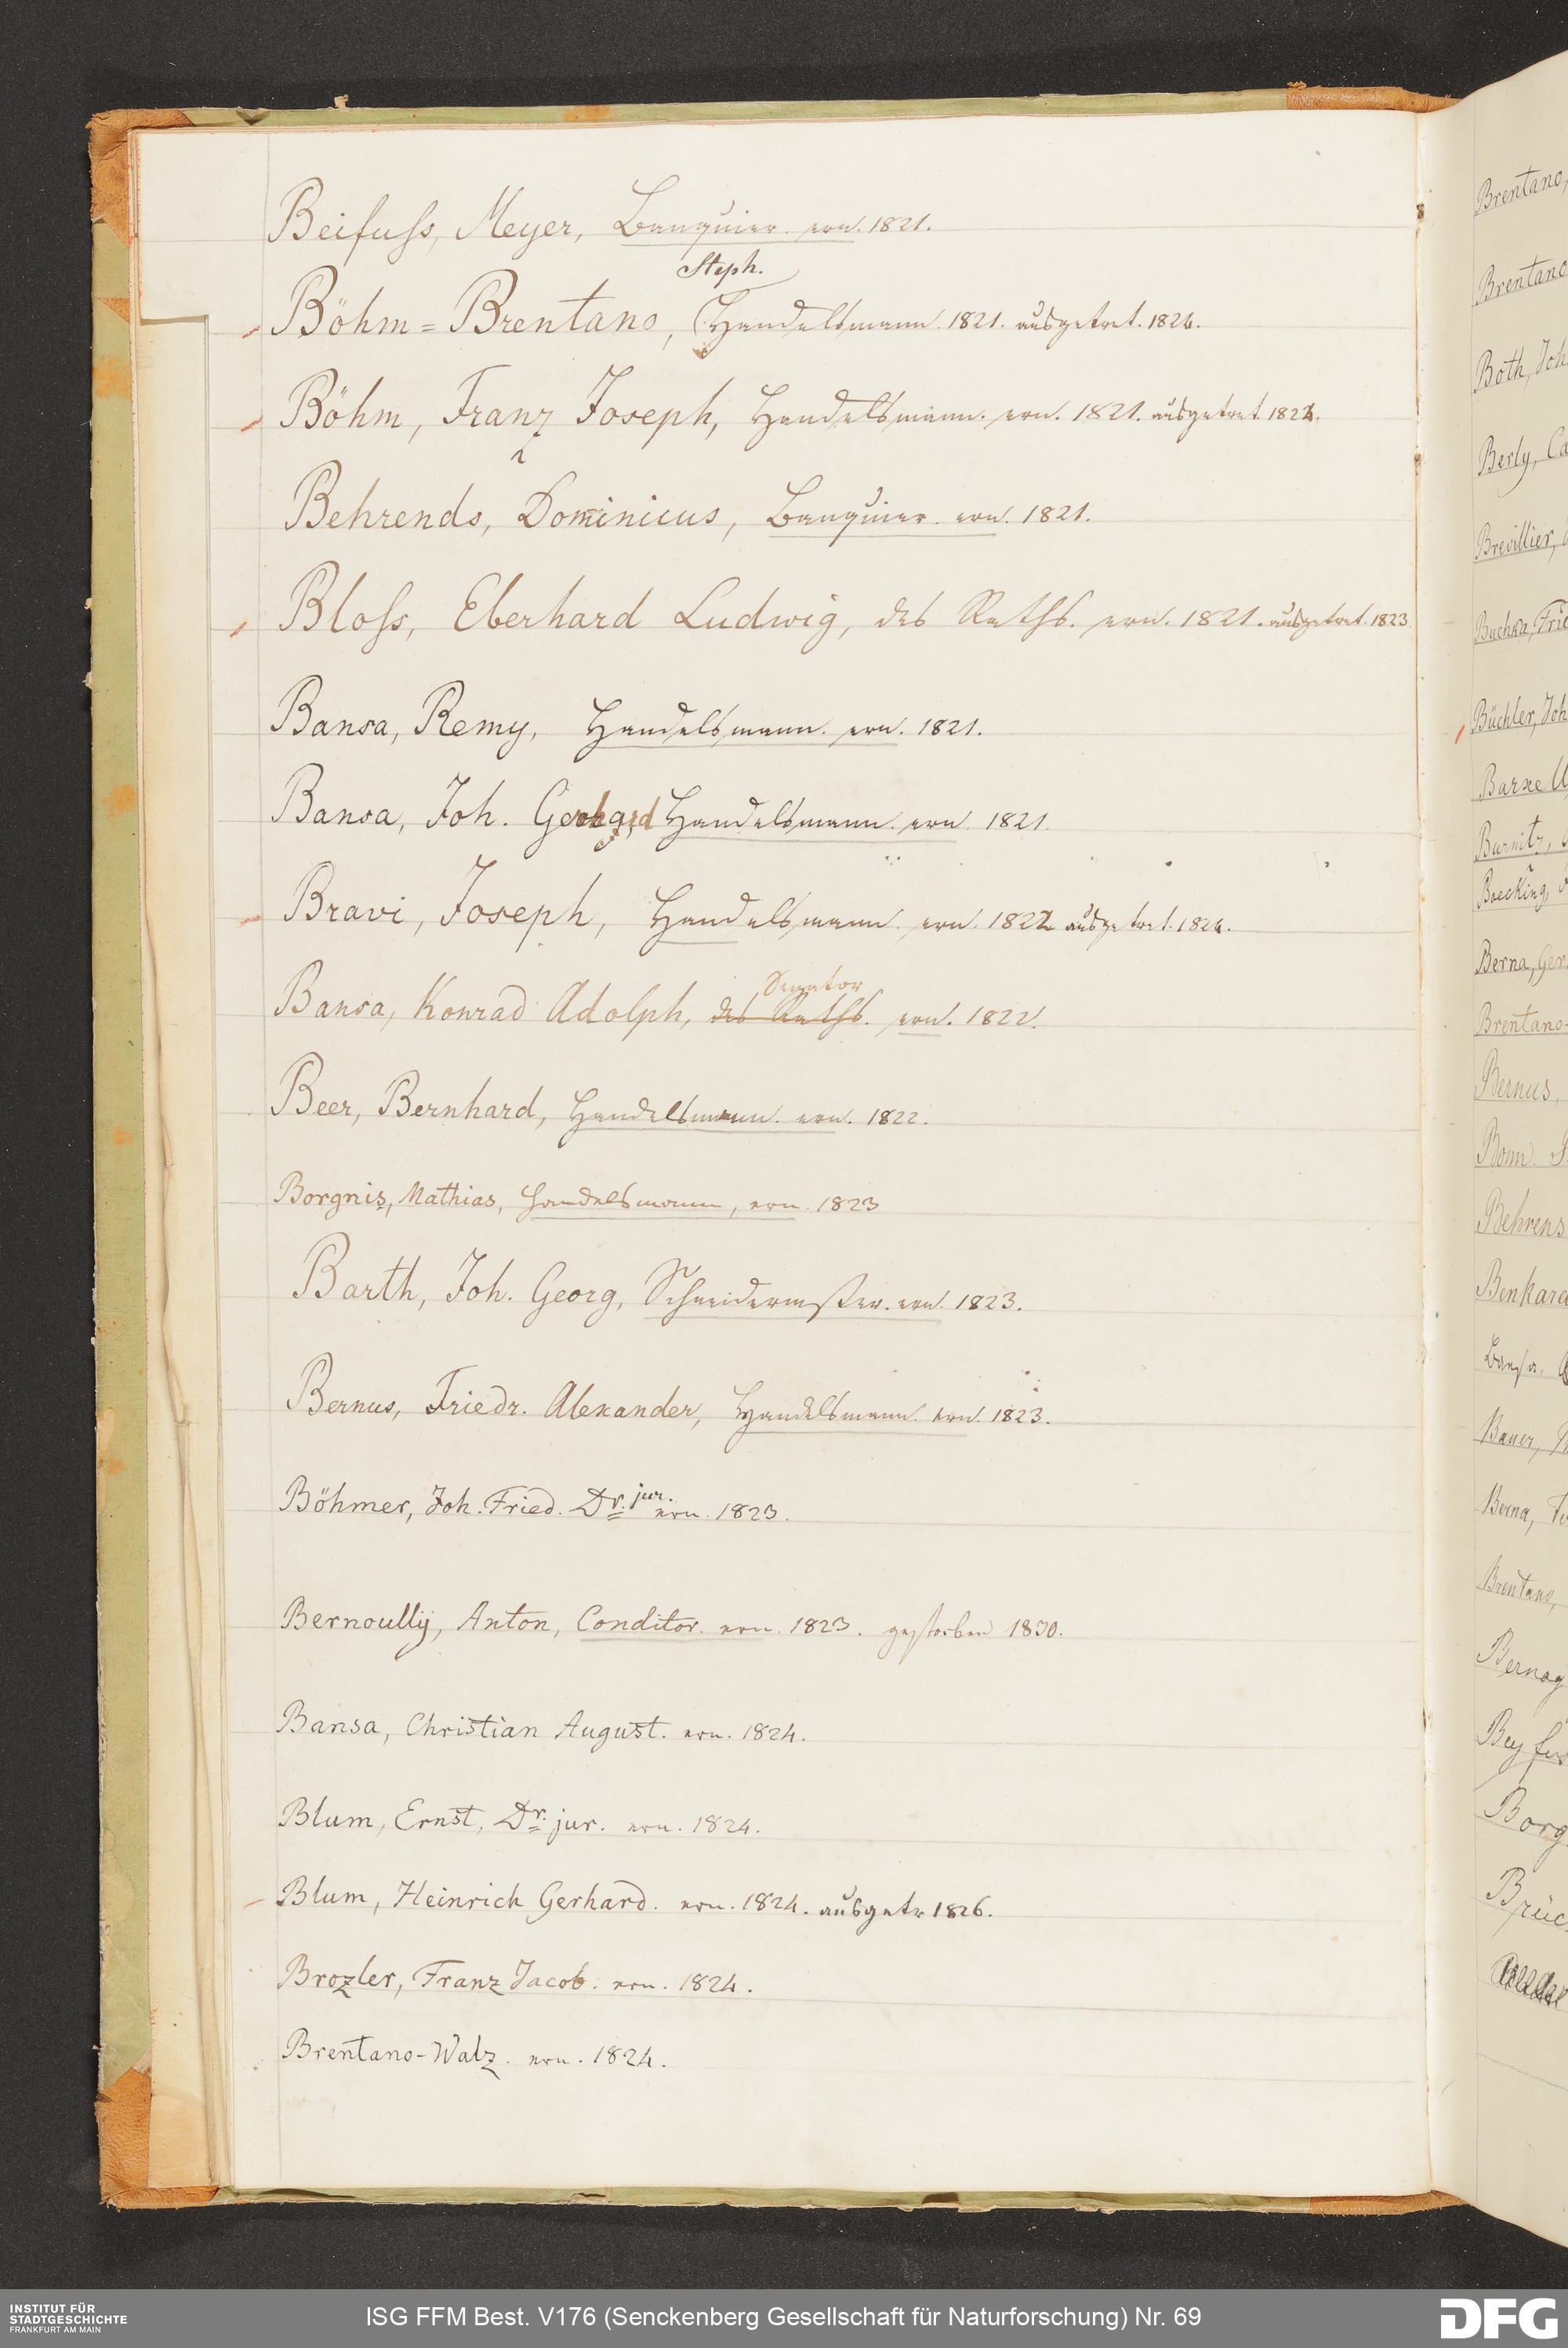 Beifuſs, Meyer, Banquier. ern. 1821.
Steph.
Böhm=Brentano, Handelsmann. 1821. ausgetret. 1824.
Böhm, Franz Joseph, Handelsmann. ern. 1821. ausgetret.
Behrends, Dominicus, Banquier. ern. 1821.
Bloſs, Eberhard Ludwig, des Raths. ern. 1821. ausgetret. 1823
Bansa, Remy, Handelsmann. ern. 1821.
Bansa, Joh. Handelsmann. ern. 1821.
Bravi, Joseph, Handelsmann. ern. 1822 ausgetret. 1824.
Senator
Bansa, Konrad Adolph, des Raths. ern. 1822.
Beer, Bernhard, Handelsmann. ern. 1822.
Borgnis, Mathias, Handelsmann, ern. 1823
Barth, Joh. Georg, Schneidermster. ern. 1823.
Bernus, Friedr. Alexander, Handelsmann. ern. 1823.
Böhmer, Joh. Fried. Dr. jur. ern. 1823.
Bernoully, Anton, Conditor. ern. 1823. gestorben 1830.
Bansa, Christian August. ern. 1824.
Blum, Ernst, Dr. jur. ern. 1824.
Blum, Heinrich Gerhard. ern. 1824. ausgetr 1826.
Brozler, Franz Jacob. ern. 1824.
Brentano-Walz. ern. 1824.
Brentano,
Brentano
Both, Joh
Berly, Ca
Brevillier,
Büchler, Joh
Berna, Ger
Brentano-
Bernus,
Behrens
Benkard
Bansa,
Bauer,
Berna,
Brentano,
Borg
INSTITUT FÜR
STADTGESCHICHTE
FRANKFURT AM MAIN
ISG FFM Best. V176 (Senckenberg Gesellschaft für Naturforschung) Nr. 69
DFG